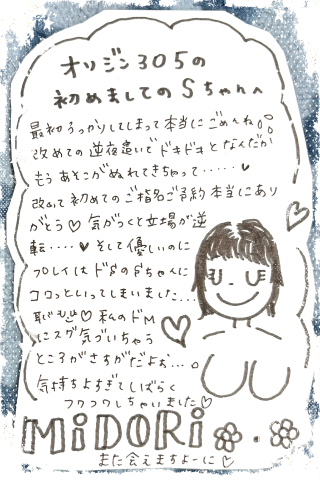 オリジン305の
初めましてのSちゃんへ
最初うっかりしてしまって本当にごめんね
改めての逆夜這いでドキドキとなんだか
もうあそこがぬれてきちゃって・・・・・♥
改めて初めてのご指名ご予約本当にあり
がとう♡ 気がつくと立場が逆
転・・・・♥ そして優しいのに
プレイはドSのSちゃんに
コロっといってしまいました...
恥じ♡ 私のドM
にスグ気づいちゃう
ところがさすがだよぉ...。
気持ちよすぎてしばらく
フワフワしちゃいました♡
MiDORi
また会えますよーに♡